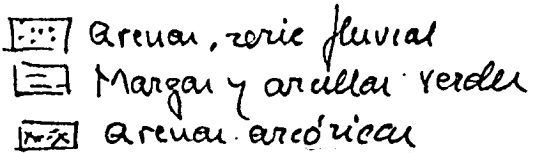 Arenas, serie fluvial
Margas y arcillas verdes
Arenas arcósicas